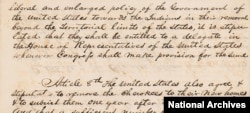 liberal and enlarged policy of the Government of
the United States towards the Indians in their removal
beyond the territorial limits of the States, it is stipu-
lated that they shall be entitled to a delegate in
the House of Representatives of the United States
whenever Congress shall make provision for the same
Article 8th The United States also agree &
stipulate to remove the Cherokees to their new homes
& to subsist them one year after
that a sufficient number of
National Archives